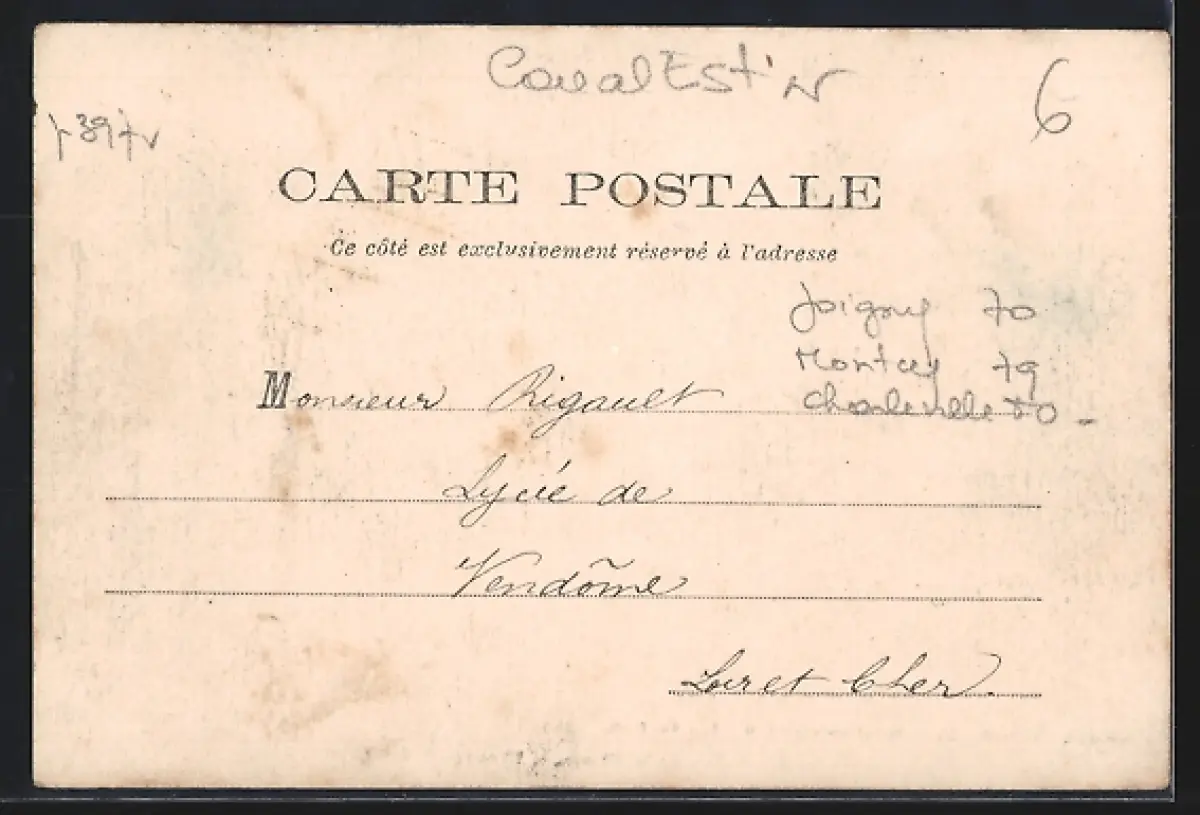 6
CARTE POSTALE
Ce côté est exclusivement réservé à l'adresse
Joigny 70
79
Charleville 80 -
Monsieur Rigault
Lycée de
Vendôme
Loir et Cher